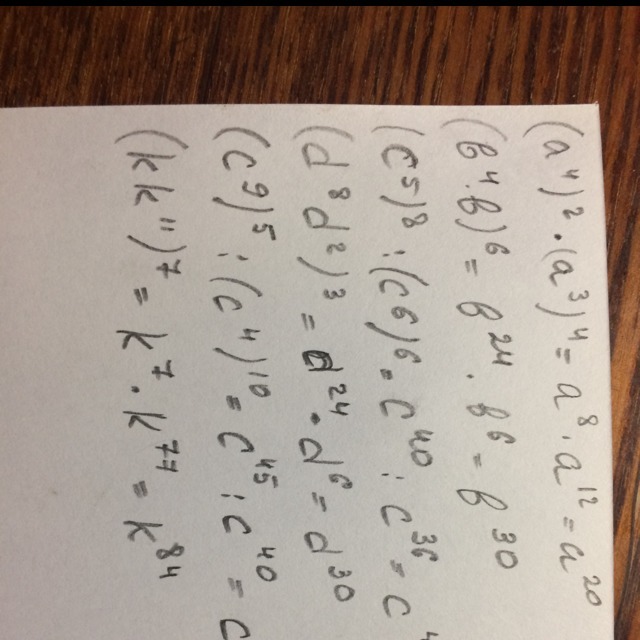 (a⁴)² · (a³)⁴ = a⁸ · a¹² = a²⁰
(b⁴ · b)⁶ = b²⁴ · b⁶ = b³⁰
(c⁵)⁸ : (c⁶)⁶ = c⁴⁰ : c³⁶ = c⁴
(d⁸d²)³ = d²⁴ · d⁶ = d³⁰
(c⁹)⁵ : (c⁴)¹⁰ = c⁴⁵ : c⁴⁰ = c
(kk¹¹)⁷ = k⁷ · k⁷⁷ = k⁸⁴